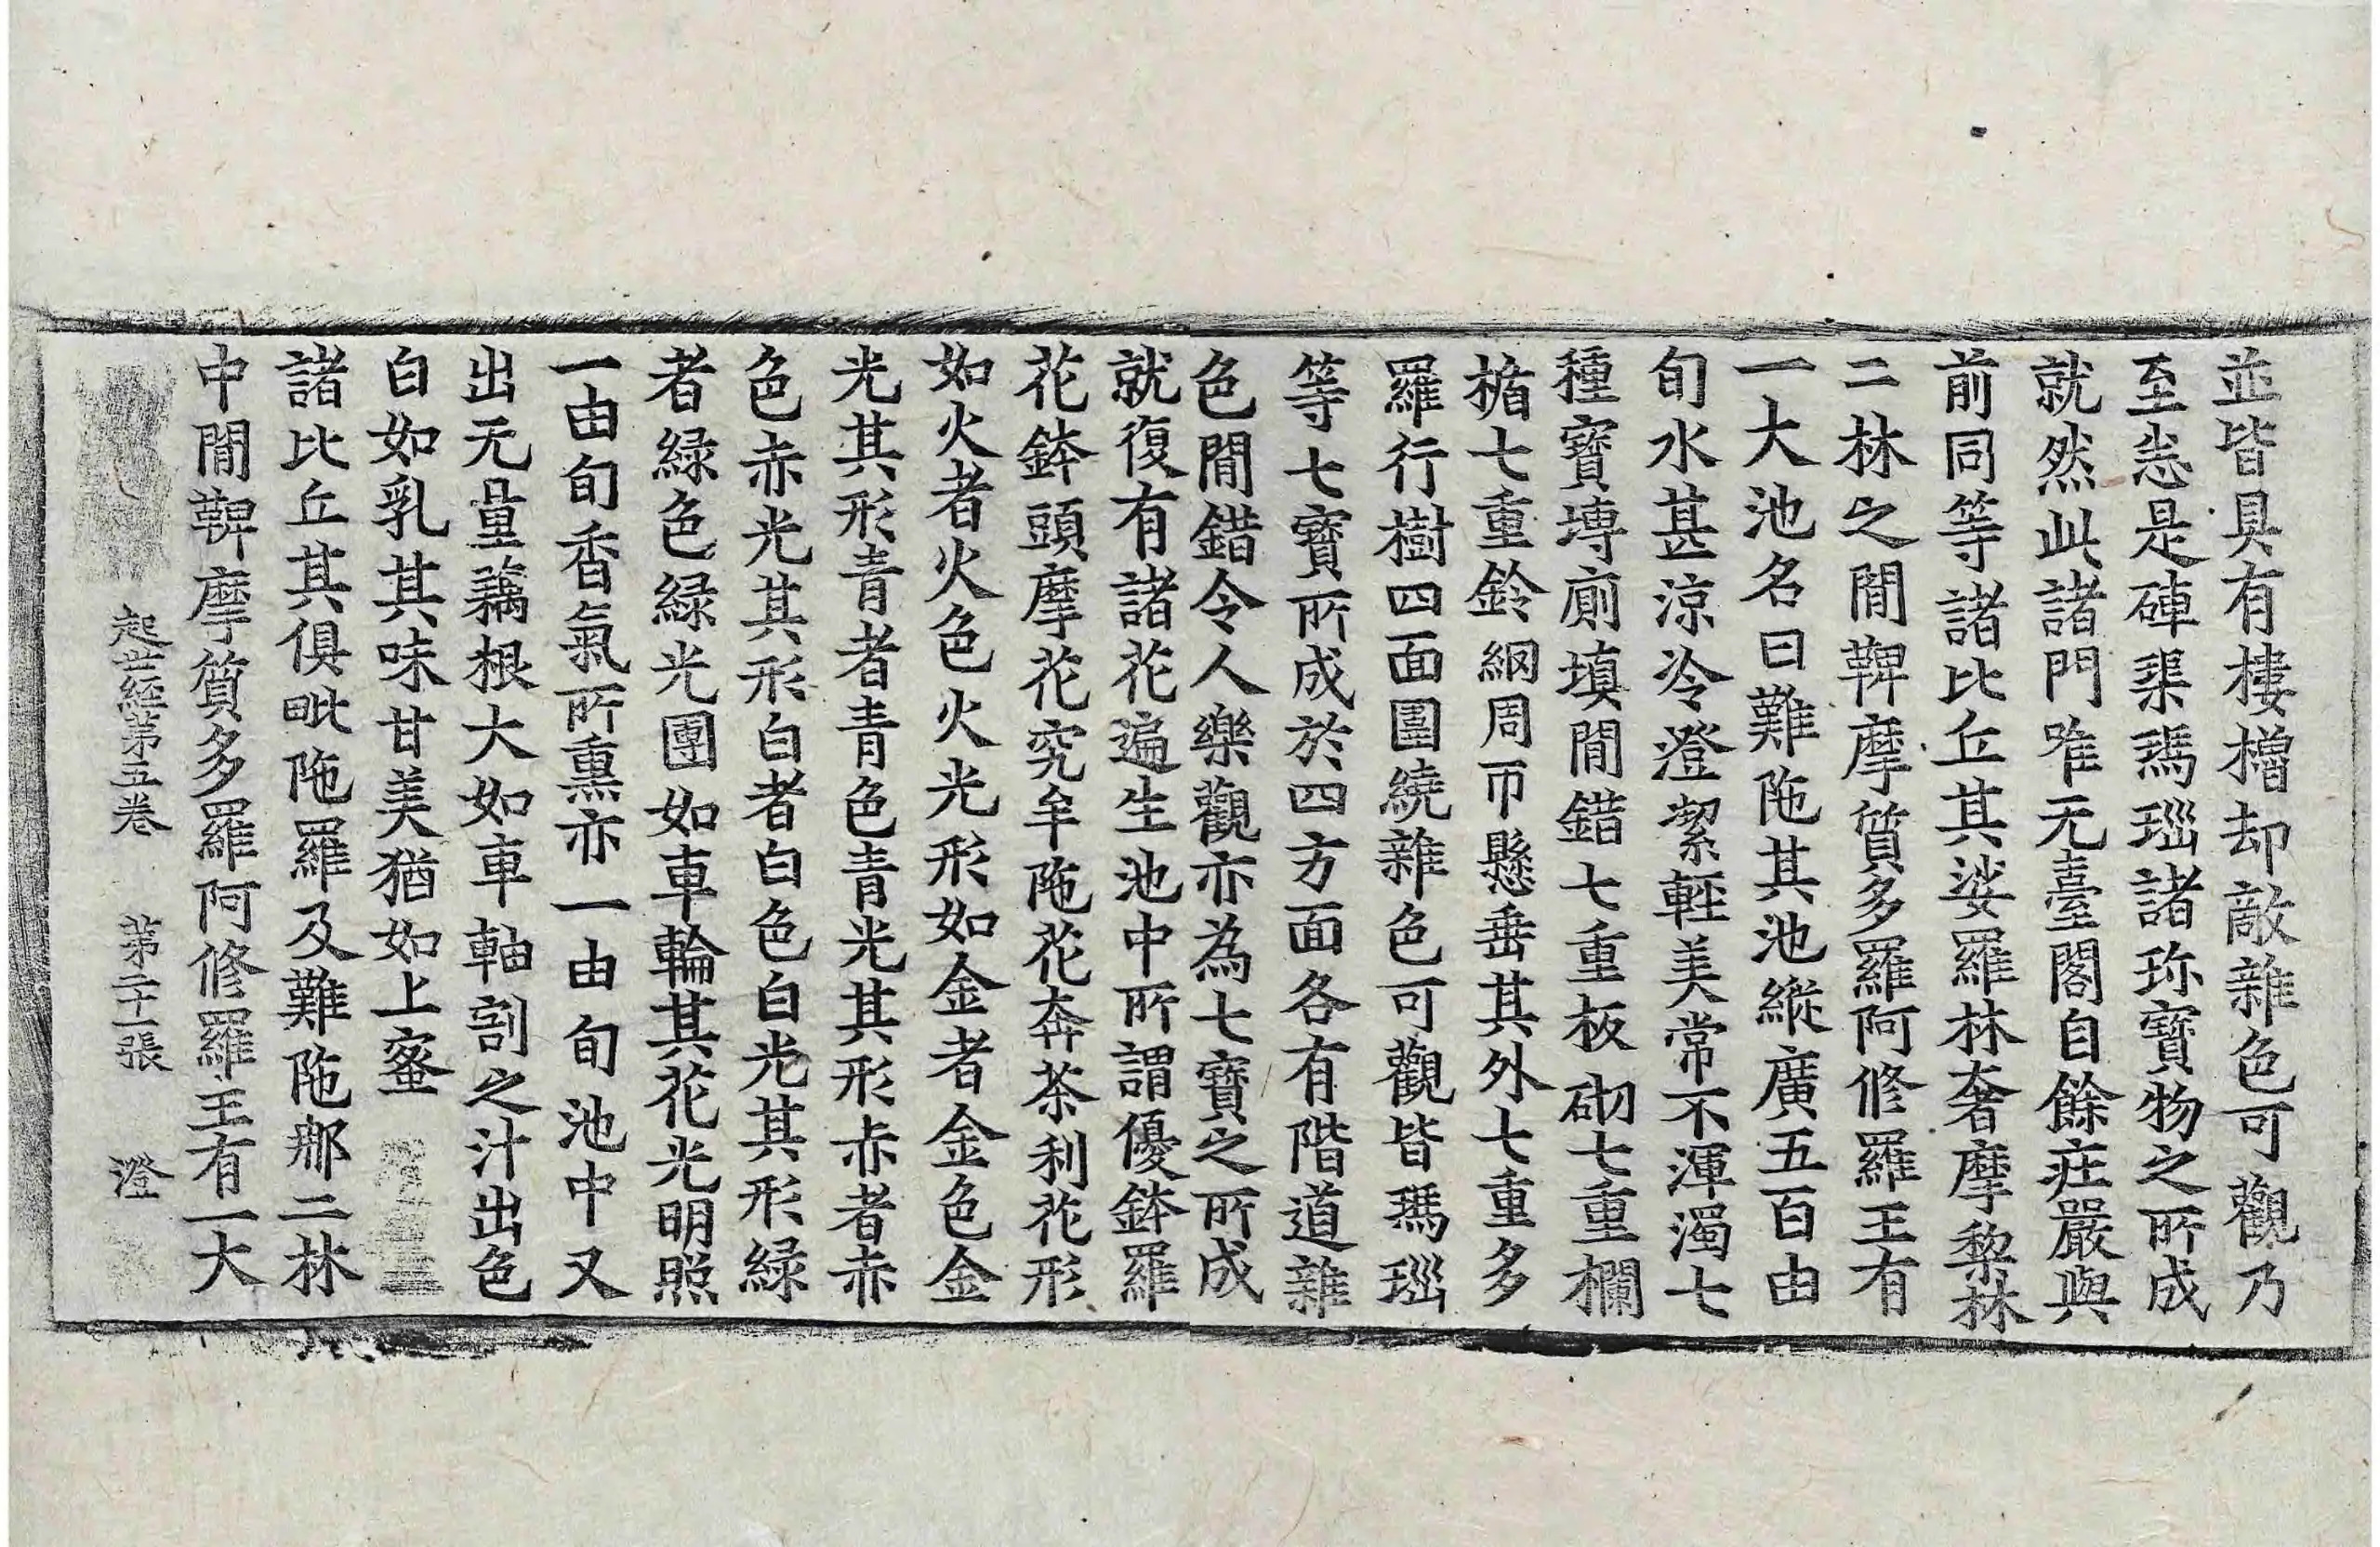 並皆具有樓櫓却敵雜色可觀乃
至恙是硨𤦲瑪瑙諸珎寶物之所成
就然此諸門唯无臺閣自餘莊嚴與
前同等諸比丘其娑羅林奢摩黎林
二林之閒鞞摩質多羅阿修羅王有
一大池名曰難陁其池縱廣五百由
旬水甚涼冷澄潔輕美常不渾濁七
種寶塼廁塡閒錯七重板砌七重欄
楯七重鈴網周帀懸垂其外七重多
羅行樹四面圍繞雜色可觀皆瑪瑙
等七寶所成於四方面各有階道雜
色閒錯令人樂觀亦為七寶之所成
就復有諸花遍生池中所謂優鉢羅
花鉢頭摩花究牟陁花奔茶利花形
如火者火色火光形如金者金色金
光其形青者青色青光其形赤者赤
色赤光其形白者白色白光其形緑
者緑色緑光團如車輪其花光明照
一由旬香氣所熏亦一由旬池中又
出无量藕根大如車軸割之汁出色
白如乳其味甘美猶如上蜜
諸比丘其俱毗陁羅及難陁那二林
中閒鞞摩質多羅阿修羅王有一大
起世経第五卷 第二十一張 澄